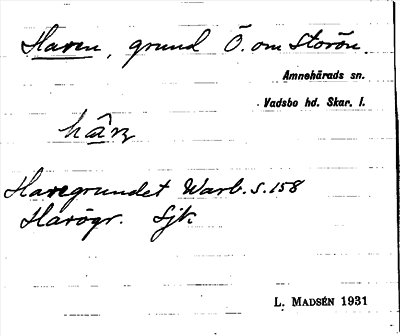 Haren, grund Ö. om Storön.
Amnehärads sn.
Vadsbo hd. Skar. l.
Haregrundet Warb. s. 158
Harögr. Sjk
L. MADSÉN 1931